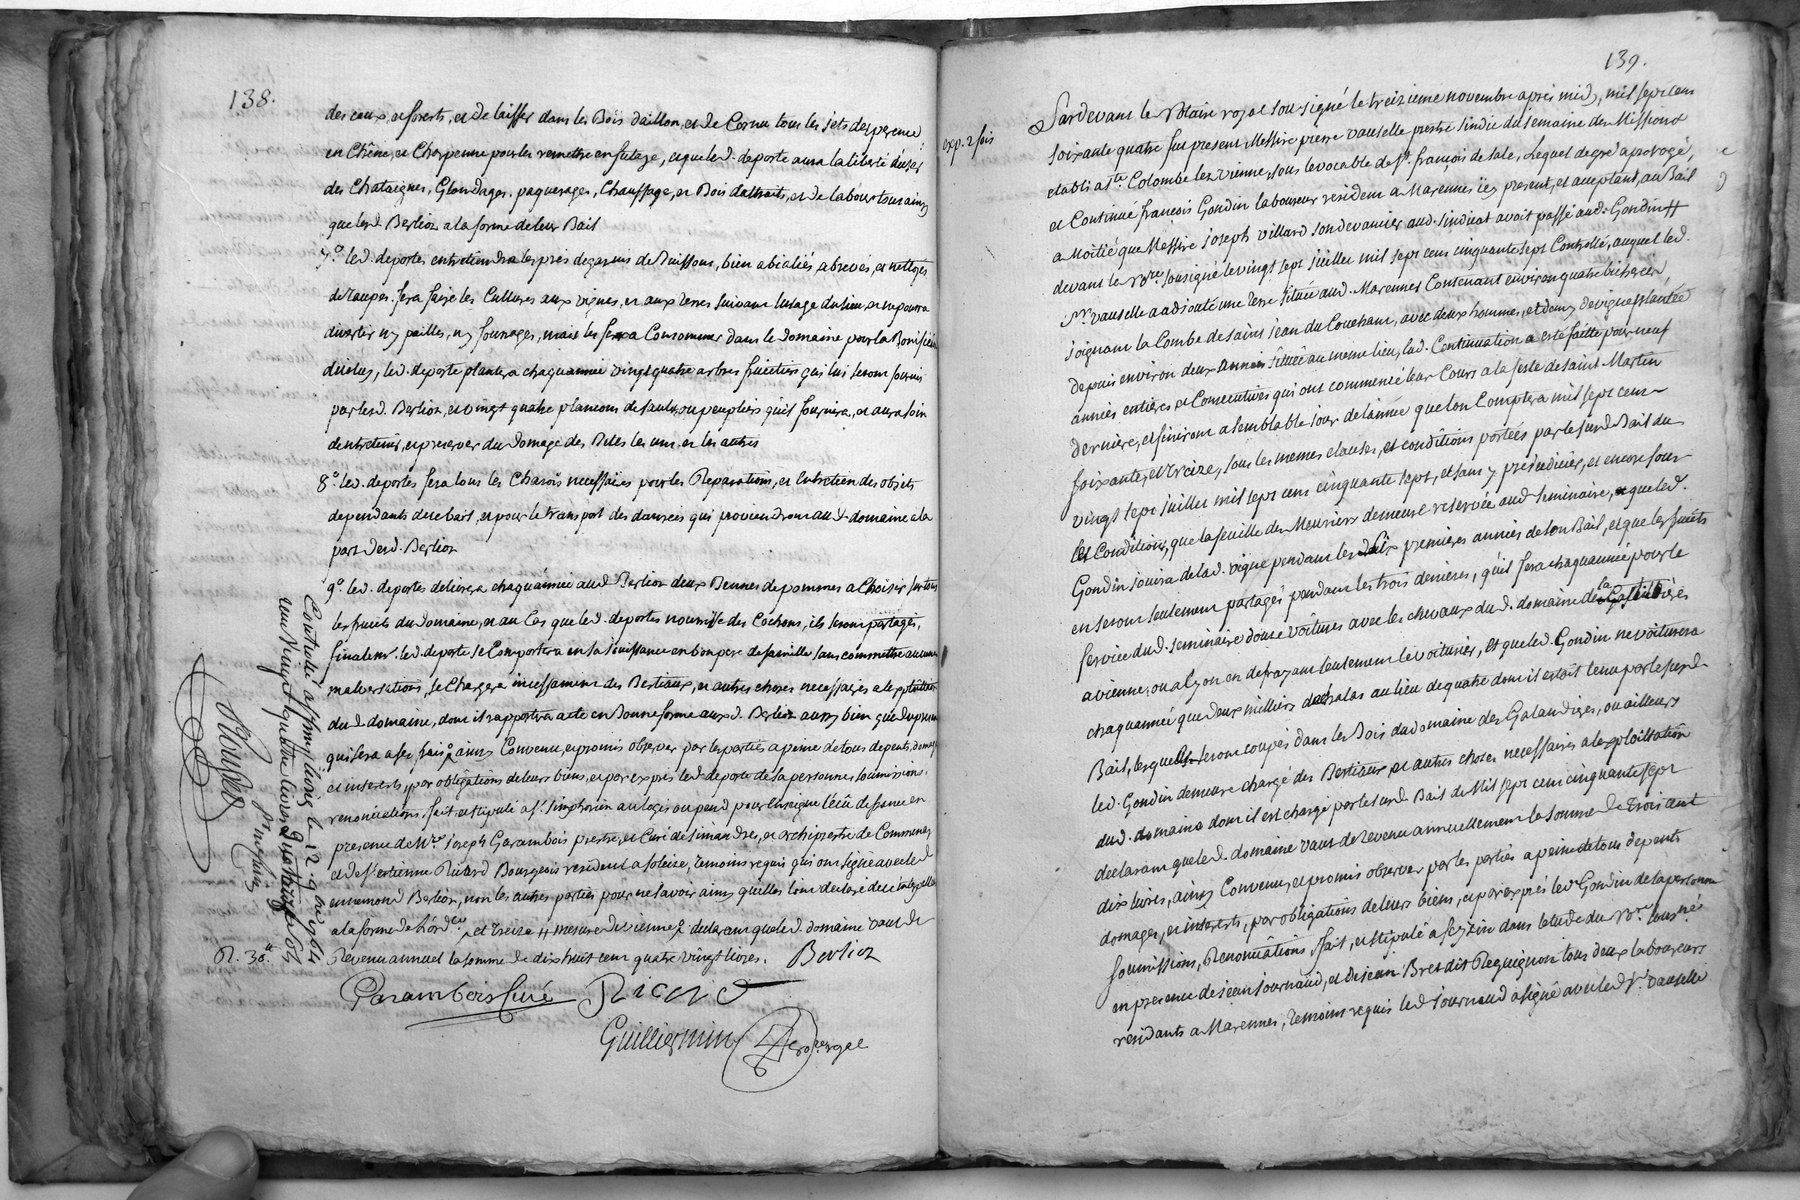 138.
des eaux, et forets, et de laisser dans les Bois daillon, et de Cornu tous les jets de
en Chêne, et Charpenne pour les remettre en futage, et que led. deporte aura la liberté duser
des Chataignes, Glandages, paquerages, Chauffage, et Bois dattraits, et de labour tous ainsy
que led. Berlioz a la forme de leur Bail
7.° led. deportes entretiendra les prés degarnis de Buissons, bien abialiés abrevés, et nettoyés
de Taupes. fera faire les Cultures aux vignes, et aux terres suivant lusage du lieu, et ne pourra
divertir ny pailles, ny fourages, mais les fera Consommer dans le domaine pour la Bonifié
diceluy, led. deporte plantera chaquannée vingt quatre arbres fruitiers qui lui seront fournis
par led. Berlioz, et vingt quatre plancons de saule, ou peupliers quil fournira, et aura soin
dentretenir, et preserver du domage des Betes les uns et les autres
8.° led. deportes fera tous les Charois necessaires pour les Reparations, et Entretien des objets
dependants dece bail, et pour le transport des danrées qui proviendront aud. domaine a la
part dud. Berlioz
9.° led. deportes delivrera chaquannée aud. Berlioz deux Bennes de pommes a Choisir sur tous
les fruits du domaine, et au Cas que led. deportes nourrisse des Cochons, ils seront partagés,
finalem.t led. deporte se Comportera en sa Jouissance en bon pere de famille sans commettre aucune
malversations, se Chargera incessament des Bestiaux, et autres choses necessaires a lexploitation
dud. domaine, dont il rapportra acte en Bonne forme auxd. Berlioz aussy bien que du present
qui sera a ses frais, ainsy Convenu, et promis observer par les parties a peine de tous depents, domages
et interets, par obligations de leurs biens, et par exprès led. deporte de sa personne, soumissions,
renonciations, fait, et stipulé a S.t Simphorien au logis ou pend pour Enseigne l'Ecû de france en
presence de M.re Joseph Garambois prestre, et Curé de Simandre, et archiprestre de Communay
et de S.r estienne Ricard Bourgeois resident a Solaise, temoins requis qui ont signé avec led
ennemond Berlioz, non les autres parties pour ne savoir ainsy quelles lont declaré de ce interpellés
a la forme de l'ord.ce et treize H mesure de vienne & declarant que led. domaine vaut de
R. 30.s Revenu annuel la somme de dix huit cent quatre vingt livres. Berlioz
Garambois Curé Ricard
Guilliermin
Controlé a St Simphorien le 12. 9bre 1764
139.
exp. 2 fois
Pardevant le Notaire royal sousigné le treizieme novembre après midy, mil sept cens
soixante quatre fut present Messire pierre vauselle prestre sindic du semaine des Missions
etabli a S.te Colombe lez vienne, sous le vocable de S.t françois de Sale, Lequel de gré a prorogé,
et Continué françois Gondin laboureur resident a Marennes icy present, et acceptant, au Bail
a Moitié que Messire Joseph Villard son devancier aud. sindicat avoit passé aud. Gondin H
devant le N.re sousigné le vingt sept Juillet mil sept cens cinquante sept Controllé, auquel led.
M.r vauselle a adjouté une Terre située aud. Marennes Contenant environ quatre bicherées,
joignant la Combe de saint jean du Couchant, avec deux hommes, et demy de vigne plantée
depuis environ deux années située au meme lieu, lad. Continuation a esté faitte pour neuf
années entieres et Consecutives qui ont commencé leur Cours a la feste de saint Martin
derniere, et finiront a semblable jour de lannée que lon Comptera mil sept cent
soixante, et Treize, sous les memes clauses, et conditions portées par le sud. Bail du
vingt sept juillet mil sept cens cinquante sept, et sans y prejudicier, et encore sous
les Conditions, que la feuille des Meuriers demeure reservée aud. seminaire, et que led.
Gondin jouira de lad. vigne pendant les six premieres années de son Bail, et que les fruits
en seront seulement partagés pendant les trois dernieres, quil fera chaquannée pour le
service dud. seminaire douze voitures avec les chevaux dud. domaine de la
a vienne, ou a Lyon en defrayant seulement le voiturier, et que led. Gondin ne voiturera
chaquannée que deux milliers dechalas au lieu de quatre dont il estoit tenu par le sud.
Bail, lesquels seront coupés dans les Bois du domaine des Galandiges, ou ailleurs
led. Gondin demeure chargé des Bestiaux et autres choses necessaires a lexploitation
dud. domaine dont il est chargé par le sud. Bail de Mil sept cent cinquante sept
declarant que led. domaine vaut de revenu annuellement la somme de Trois cent
dix livres, ainsy Convenu, et promis observer par les parties a peine de tous depents
domages, et interests, par obligations de leurs biens, et par exprès led. Gondin de sa personne
soumissions, Renonciations, fait, et stipulé a feyzin dans letude du N.re sousigné
en presence de jean Journaud, et de jean Bret dit Requignon tous deux laboureurs
residants a Marennes, temoins requis led. Journaud a signé avec led. S.r vauselle